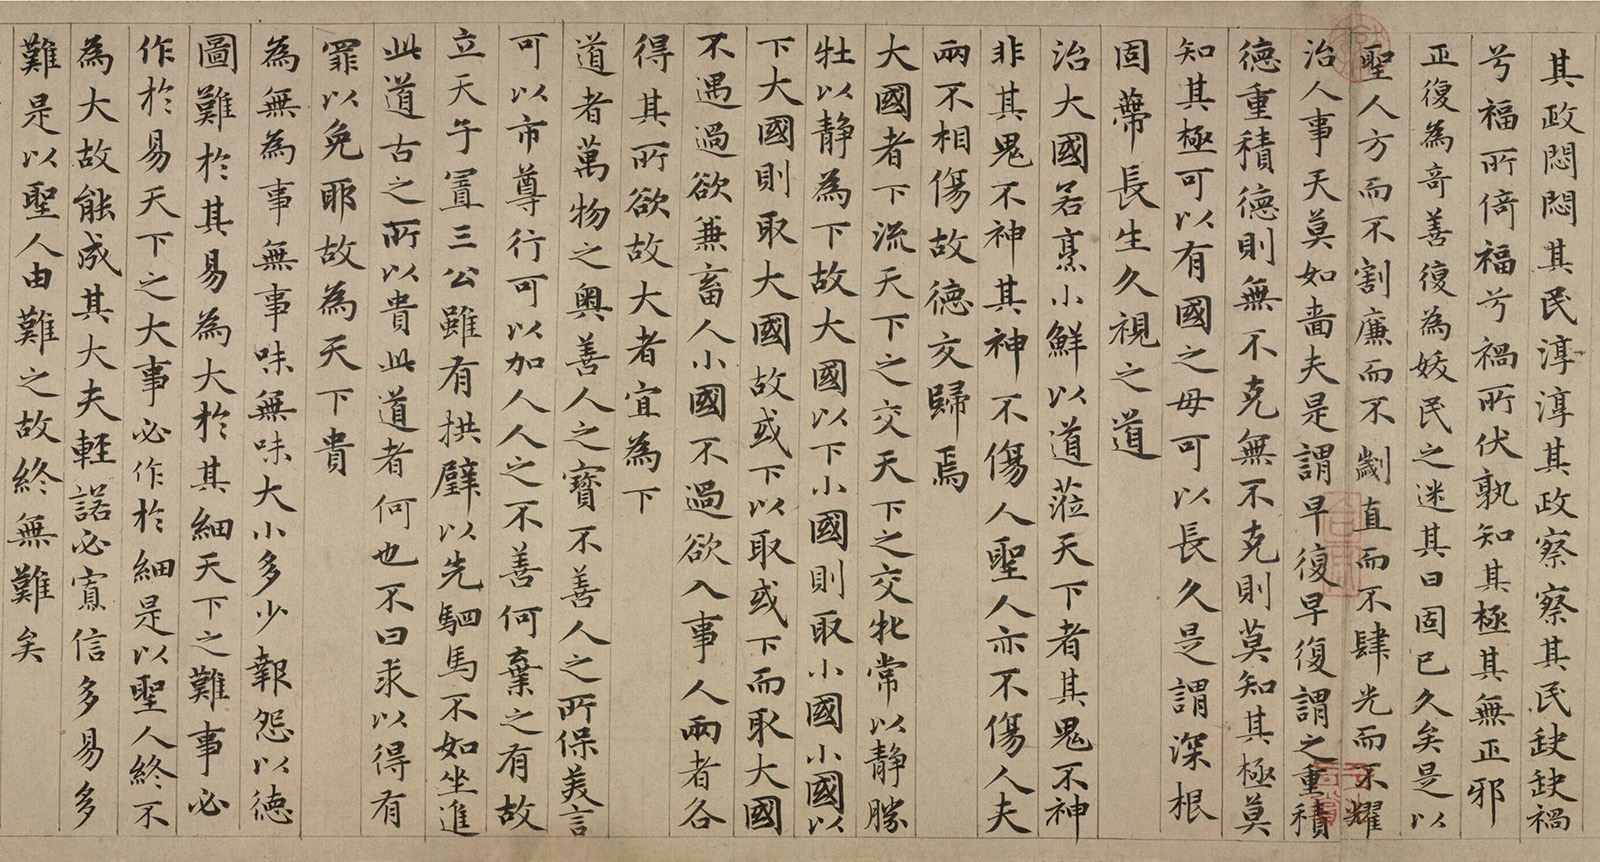 其政悶悶其民淳淳其政察察其民缺缺禍
兮福所倚福兮禍所伏孰知其極其無正邪
正復為奇善復為妖民之迷其日固已久矣是以
聖人方而不割廉而不劌直而不肆光而不耀
治人事天莫如嗇夫是謂早復早復謂之重積
德重積德則無不克無不克則莫知其極莫
知其極可以有國之母可以長久是謂深根
固蔕長生久視之道
治大國若烹小鮮以道蒞天下者其鬼不神
非其鬼不神其神不傷人聖人亦不傷人夫
兩不相傷故德交歸焉
大國者下流天下之交天下之交牝常以靜勝
牡以靜為下故大國以下小國則取小國小國以
下大國則取大國故或下以取或下而取大國
不過過欲兼畜人小國不過欲入事人兩者各
得其所欲故大者宜為下
道者萬物之奧善人之寶不善人之所保美言
可以市尊行可以加人人之不善何棄之有故
立天子置三公雖有拱璧以先駟馬不如坐進
此道古之所以貴此道者何也不曰求以得有
罪以免耶故為天下貴
為無為事無事味無味大小多少報怨以德
圖難於其易為大於其細天下之難事必
作於易天下之大事必作於細是以聖人終不
為大故能成其大夫輕諾必寡信多易多
難是以聖人由難之故終無難矣